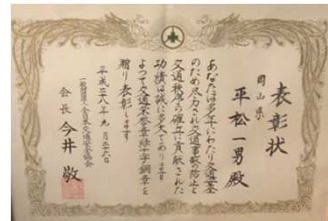 表彰状
岡山県
平松一男殿
あなたは多年にわたり交通安全
のため尽力され交通事故の防止と
交通秩序の確立に貢献された
功績は誠に多大であります
よつて交通栄誉章緑十字銅章を
贈り表彰します
平成二十八年九月三十六日
一般財団法人全日本交通安全協会
会長 今井敬